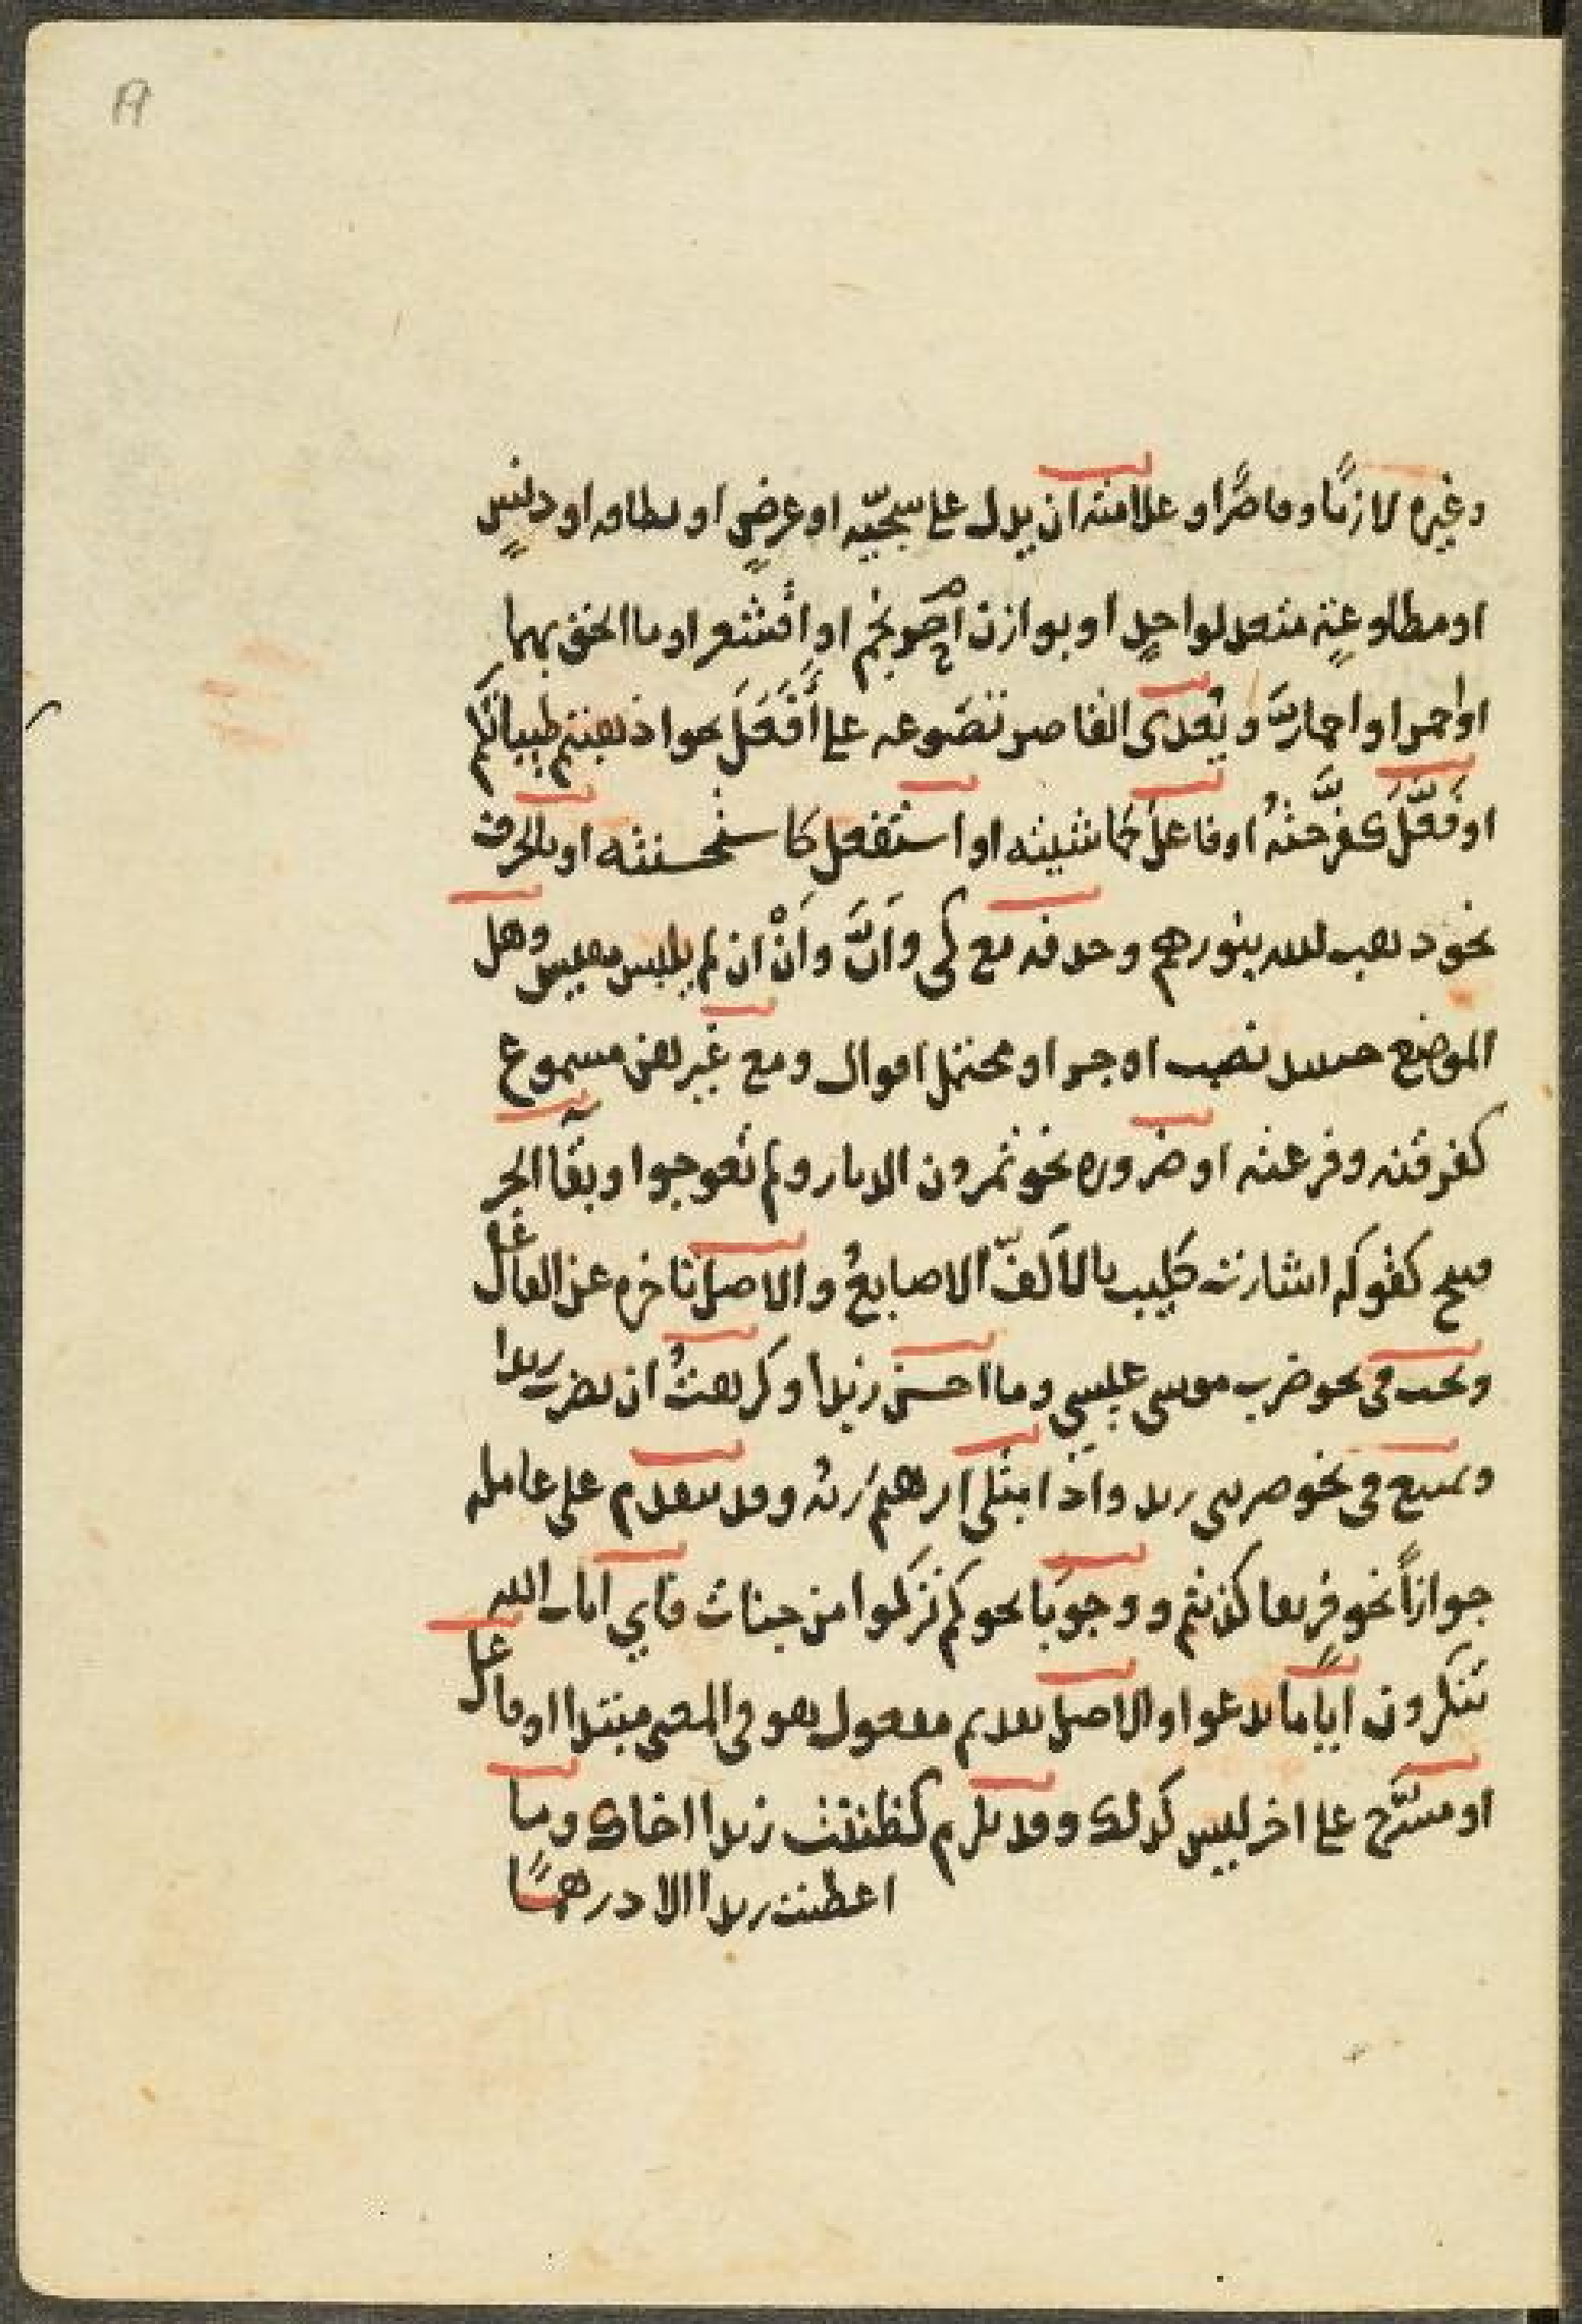 وغيره لازمًا وقاصرًا وعلامته ان يدل على سجيّه او عرضٍ او نظافه او دنسٍ
او مطاوعةِ متعد لواحدٍ او يوازن احرنجم او اقشعر او ما الحق بهما
او احمر او احمارَّ ويُعدى القاصر بتضوعه على أَفْعَلَ نحو اذهبتم طيباتكم
او فَعَّلَ كفرَّحتُه او فاعلَ كماشيته او استفعل كاستحسنته او بالحرف
نحو ذهب الله بنورهم وحذفه مع كى وأنَّ وأنْ ان لم يلبس مقيس وهل
الموضع حينئذ نصب او جر او محتمل اقوال ومع غيرهن مسموع
كفرقته وفزعته او ضروره نحو تمرون الديار ولم تعوجوا وبقآ الجر
قبيح كقوله اشارت كليب بالاكفّ الاصابعُ والاصل تاخره عن الفاعل
ويجب فى نحو ضرب موسى عيسى وما احسن زيدا وكرهتُ ان تضرب زيدا
ويمتنع فى نحو ضربنى زيد واذ ابتلى ابرهيمَ ربُه وقد يتقدم على عامله
جوازاً نحو فريقا كذبتم ووجوبًا نحو كم تركوا من جنات فاي ايات الله
تنكرون ايًاما تدعوا والاصل تقديم مفعول هو فى المعنى مبتدا او فاعل
او مسَرَّح على اخر ليس كذلك وقد يلزم كظننت زيدا اخاك وما
اعطيت زيدا الا درهمًا